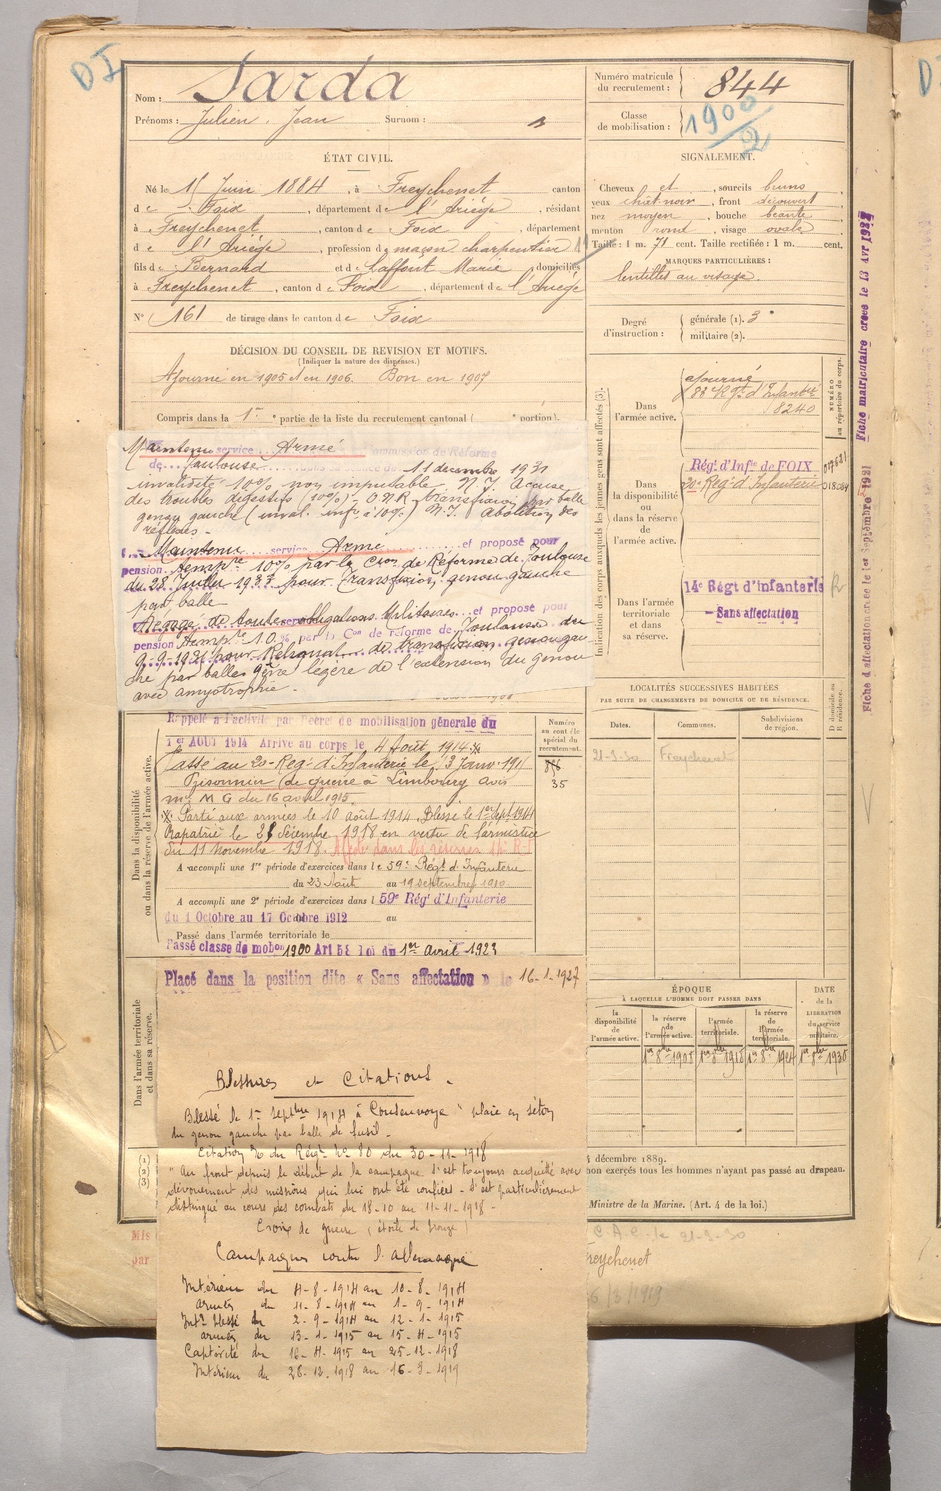 DI
Nom : Sarda
Prénoms : Julien. Jean Surnom :
Numéro matricule du recrutement : 844
Classe de mobilisation : 1900/2
ÉTAT CIVIL.
Né le 15 Juin 1884, à Freychenet canton
de Foix, département de l'Ariège, résidant
à Freychenet, canton de Foix, département
de l'Ariège, profession de maçon charpentier
fils de Bernard et de Laffont Marie domiciliés
à Freychenet, canton de Foix, département de l'Ariège
N° 161 de tirage dans le canton de Foix
SIGNALEMENT.
Cheveux et , sourcils bruns
yeux chat noir, front découvert
nez moyen, bouche béante
menton rond, visage ovale
Taille : 1 m. 71 cent. Taille rectifiée : 1 m. cent.
MARQUES PARTICULIÈRES :
lentilles au visage.
Degré d'instruction : générale (1). 3
militaire (2).
DÉCISION DU CONSEIL DE REVISION ET MOTIFS.
(Indiquer la nature des dispenses.)
Ajourné en 1905 et en 1906. Bon en 1907
Compris dans la 1re partie de la liste du recrutement cantonal ( portion).
Maintenu service Armé Commission de Réforme
de Toulouse 11 décembre 1931
invalidité 10% non imputable. N.I. Accuse
des troubles digestifs (10%) - O.N.R. transfixion par balle
genou gauche (inval. inf. à 10%) N.I. Abolition des
réflexes -
Maintenu service Armé et proposé pour
pension temp.re 10% par la Con de Réforme de Toulouse
du 28 Juillet 1933 pour Transfixion genou gauche
par balle
Dégagé de toutes obligations Militaires et proposé pour
pension Temp.re 10 % par la Con de réforme de Toulouse du
transfixion genou gau
che par balles gêne légère de l'extension du genou
avec amyotrophie.
Indication des corps auxquels les jeunes gens sont affectés (3).
NUMÉRO au répertoire du corps.
Dans l'armée active.
ajourné
88e Régt d'Infanterie
8240
Dans la disponibilité ou dans la réserve de l'armée active.
Régt d'Infie de FOIX
Régt d'Infanterie
Dans l'armée territoriale et dans sa réserve.
14e Régt d'infanterie
- Sans affectation
LOCALITÉS SUCCESSIVES HABITÉES
PAR SUITE DE CHANGEMENTS DE DOMICILE OU DE RÉSIDENCE.
Dates. Communes. Subdivisions de région. D domicile ou R résidence.
21-3-30 Freychenet
Dans la disponibilité ou dans la réserve de l'armée active.
Numéro au contrôle spécial du recrutement.
35
Rappelé à l'activité par Décret de mobilisation générale du
1er AOUT 1914 Arrivé au corps le 4 Août 1914
Passé au 20e Régt d'Infanterie le 13 Janv. 191
Prisonnier de guerre à Limbourg avis
M G du 16 avril 1915
Parti aux armées le 10 août 1914. Blessé le 1er Sept 1914
Rapatrié le 25 Décembre 1918 en vertu de l'armistice
du 11 novembre 1918. Affecté dans les réserves 14e RI
A accompli une 1re période d'exercices dans le 59e Régt d'Infanterie
du 23 Août au 19 septembre 1910
A accompli une 2e période d'exercices dans l 59e Régt d'Infanterie
du 1 Octobre au 17 Octobre 1912 au
Passé dans l'armée territoriale le
Passé classe de mobon 1900 Art 58 Loi du 1er Avril 1923
Dans l'armée territoriale et dans sa réserve.
Placé dans la position dite « Sans affectation » le 16-1-1927
ÉPOQUE
À LAQUELLE L'HOMME DOIT PASSER DANS
la disponibilité de l'armée active.
la réserve de l'armée active.
l'armée territoriale.
la réserve de l'armée territoriale.
DATE de la LIBÉRATION du service militaire.
1er 8bre 1908 1er 8bre 1918 1er 8bre 1924 1er 8bre 1930
Blessures et Citations.
Blessé le 1er Septbre 1914 à Consenvoye " plaie en séton
du genou gauche par balle de fusil -
Citation % du Régt No 80 du 30-11-1918
"Au front depuis le début de la campagne. S'est toujours acquitté avec
dévouement des missions qui lui ont été confiées. S'est particulièrement
distingué au cours des combats du 18-10 au 11-11-1918 -
Croix de guerre (étoile de bronze)
Campagnes contre l'allemagne
Intérieur du 4-8-1914 au 10-8-1914
armées du 11-8-1914 au 1-9-1914
Intr blessé du 2-9-1914 au 12-1-1915
armées du 13-1-1915 au 15-4-1915
Captivité du 16-4-1915 au 25-12-1918
Intérieur du 26-12-1918 au 16-3-1919
(1)
(2)
(3)
décembre 1889.
non exercés tous les hommes n'ayant pas passé au drapeau.
Ministre de la Marine. (Art. 4 de la loi.)
Mis
par
C.A.C. le 21-3-30
Freychenet
/3/1919
Fiche matriculaire créée le 13 Avr 1927
Fiche d'affectation créée le 1er Septembre 1921